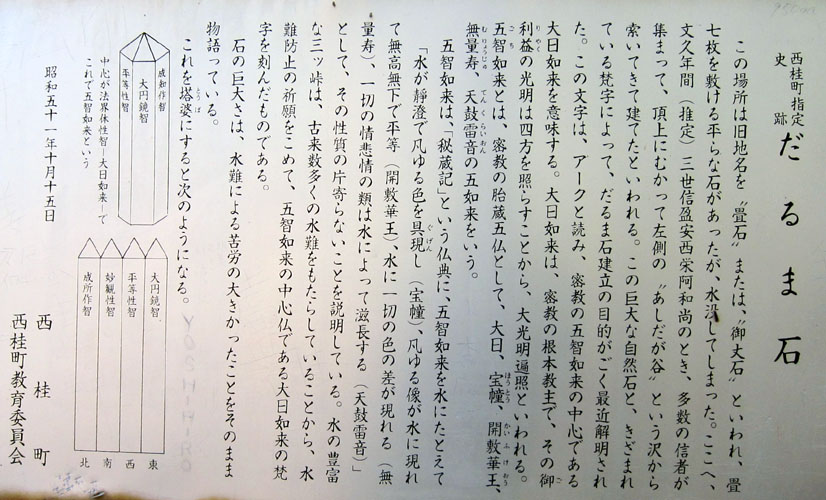 西桂町指定
史跡
だるま石
この場所は旧地名を〝畳石〟または、〝御大石〟といわれ、畳
七枚を敷ける平らな石があったが、水没してしまった。ここへ、
文久年間（推定）三世信盈安西栄阿和尚のとき、多数の信者が
集まって、頂上にむかって左側の〝あしだが谷〟という沢から
索いてきて建てたといわれる。この巨大な自然石と、きざまれ
ている梵字によって、だるま石建立の目的がごく最近解明され
た。この文字は、アークと読み、密教の五智如来の中心である
大日如来を意味する。大日如来は、密教の根本教主で、その御
利益の光明は四方を照らすことから、大光明遍照といわれる。
五智如来とは、密教の胎蔵五仏として、大日、宝幢、開敷華王、
無量寿、天鼓雷音の五如来をいう。
五智如来は、「秘蔵記」という仏典に、五智如来を水にたとえて
「水が静澄で凡ゆる色を具現し（宝幢）、凡ゆる像が水に現れ
て無高無下で平等（開敷華王）、水に一切の色の差が現れる（無
量寿）、一切の情悲情の類は水によって滋長する（天鼓雷音）」
として、その性質の片寄らないことを説明している。水の豊富
な三ッ峠は、古来数多くの水難をもたらしていることから、水
難防止の祈願をこめて、五智如来の中心仏である大日如来の梵
字を刻んだものである。
石の巨大さは、水難による苦労の大きかったことをそのまま
物語っている。
これを塔婆にすると次のようになる。
成知作智
大円鏡智
平等性智
中心が法界体性智―大日如来―で
これで五智如来という
大円鏡智
平等性智
妙観性智
成所作智
東
西
南
北
昭和五十一年十月十五日
西桂町
西桂町教育委員会
YOSHIHIRO